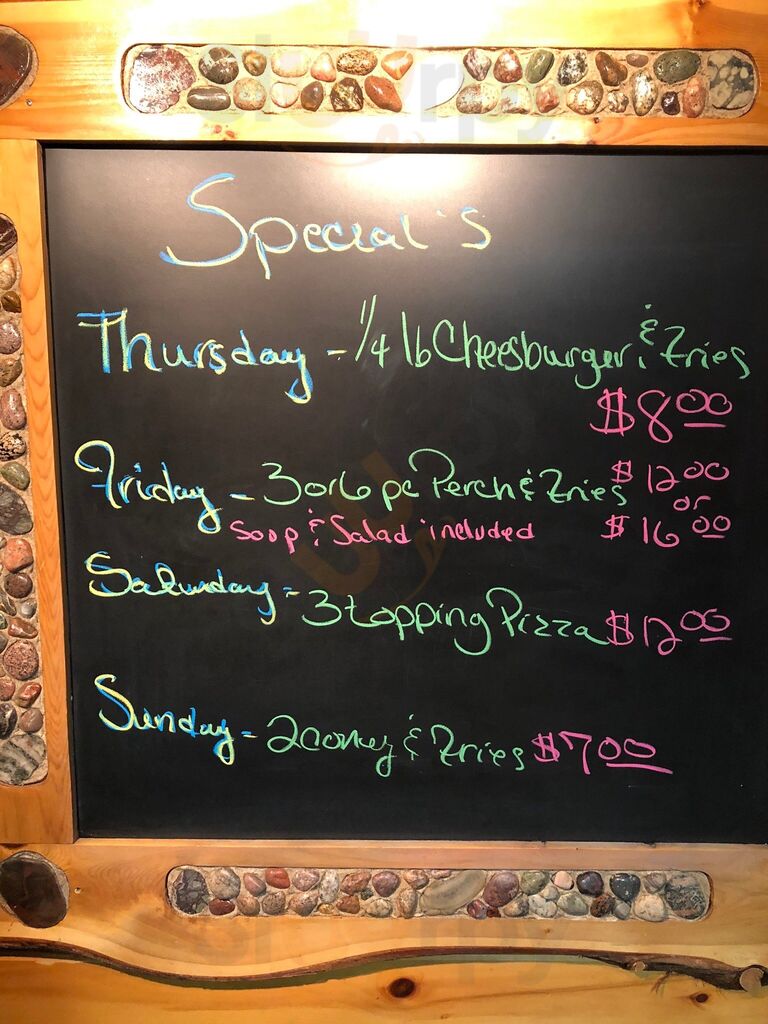 Special's
Thursday - 1/4 lb Cheesburger & Fries
$8.00
Friday - 3 or 6 pc Perch & Fries $12.00
or
Soup & Salad included $16.00
Saturday - 3 topping Pizza $12.00
Sunday - 2 coney & Fries $7.00